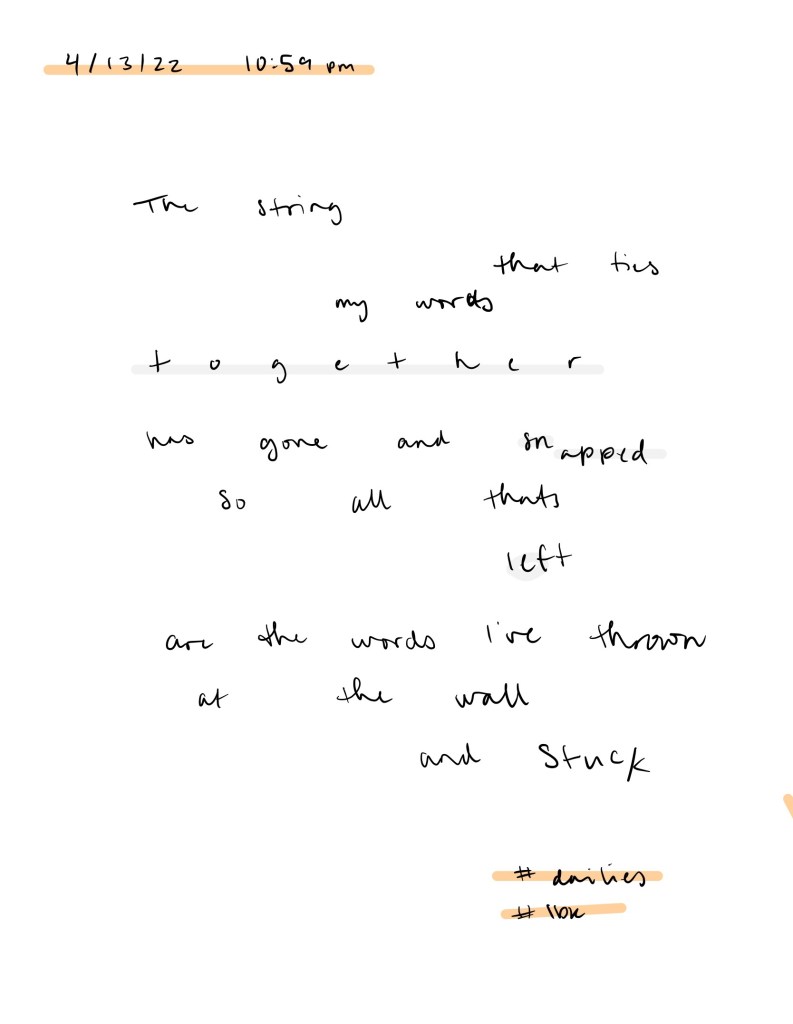 4/13/22 10:59 pm
The string
that ties
my words
t o g e t h e r
has gone and snapped
so all thats
left
are the words I've thrown
at the wall
and stuck
# dailies
#